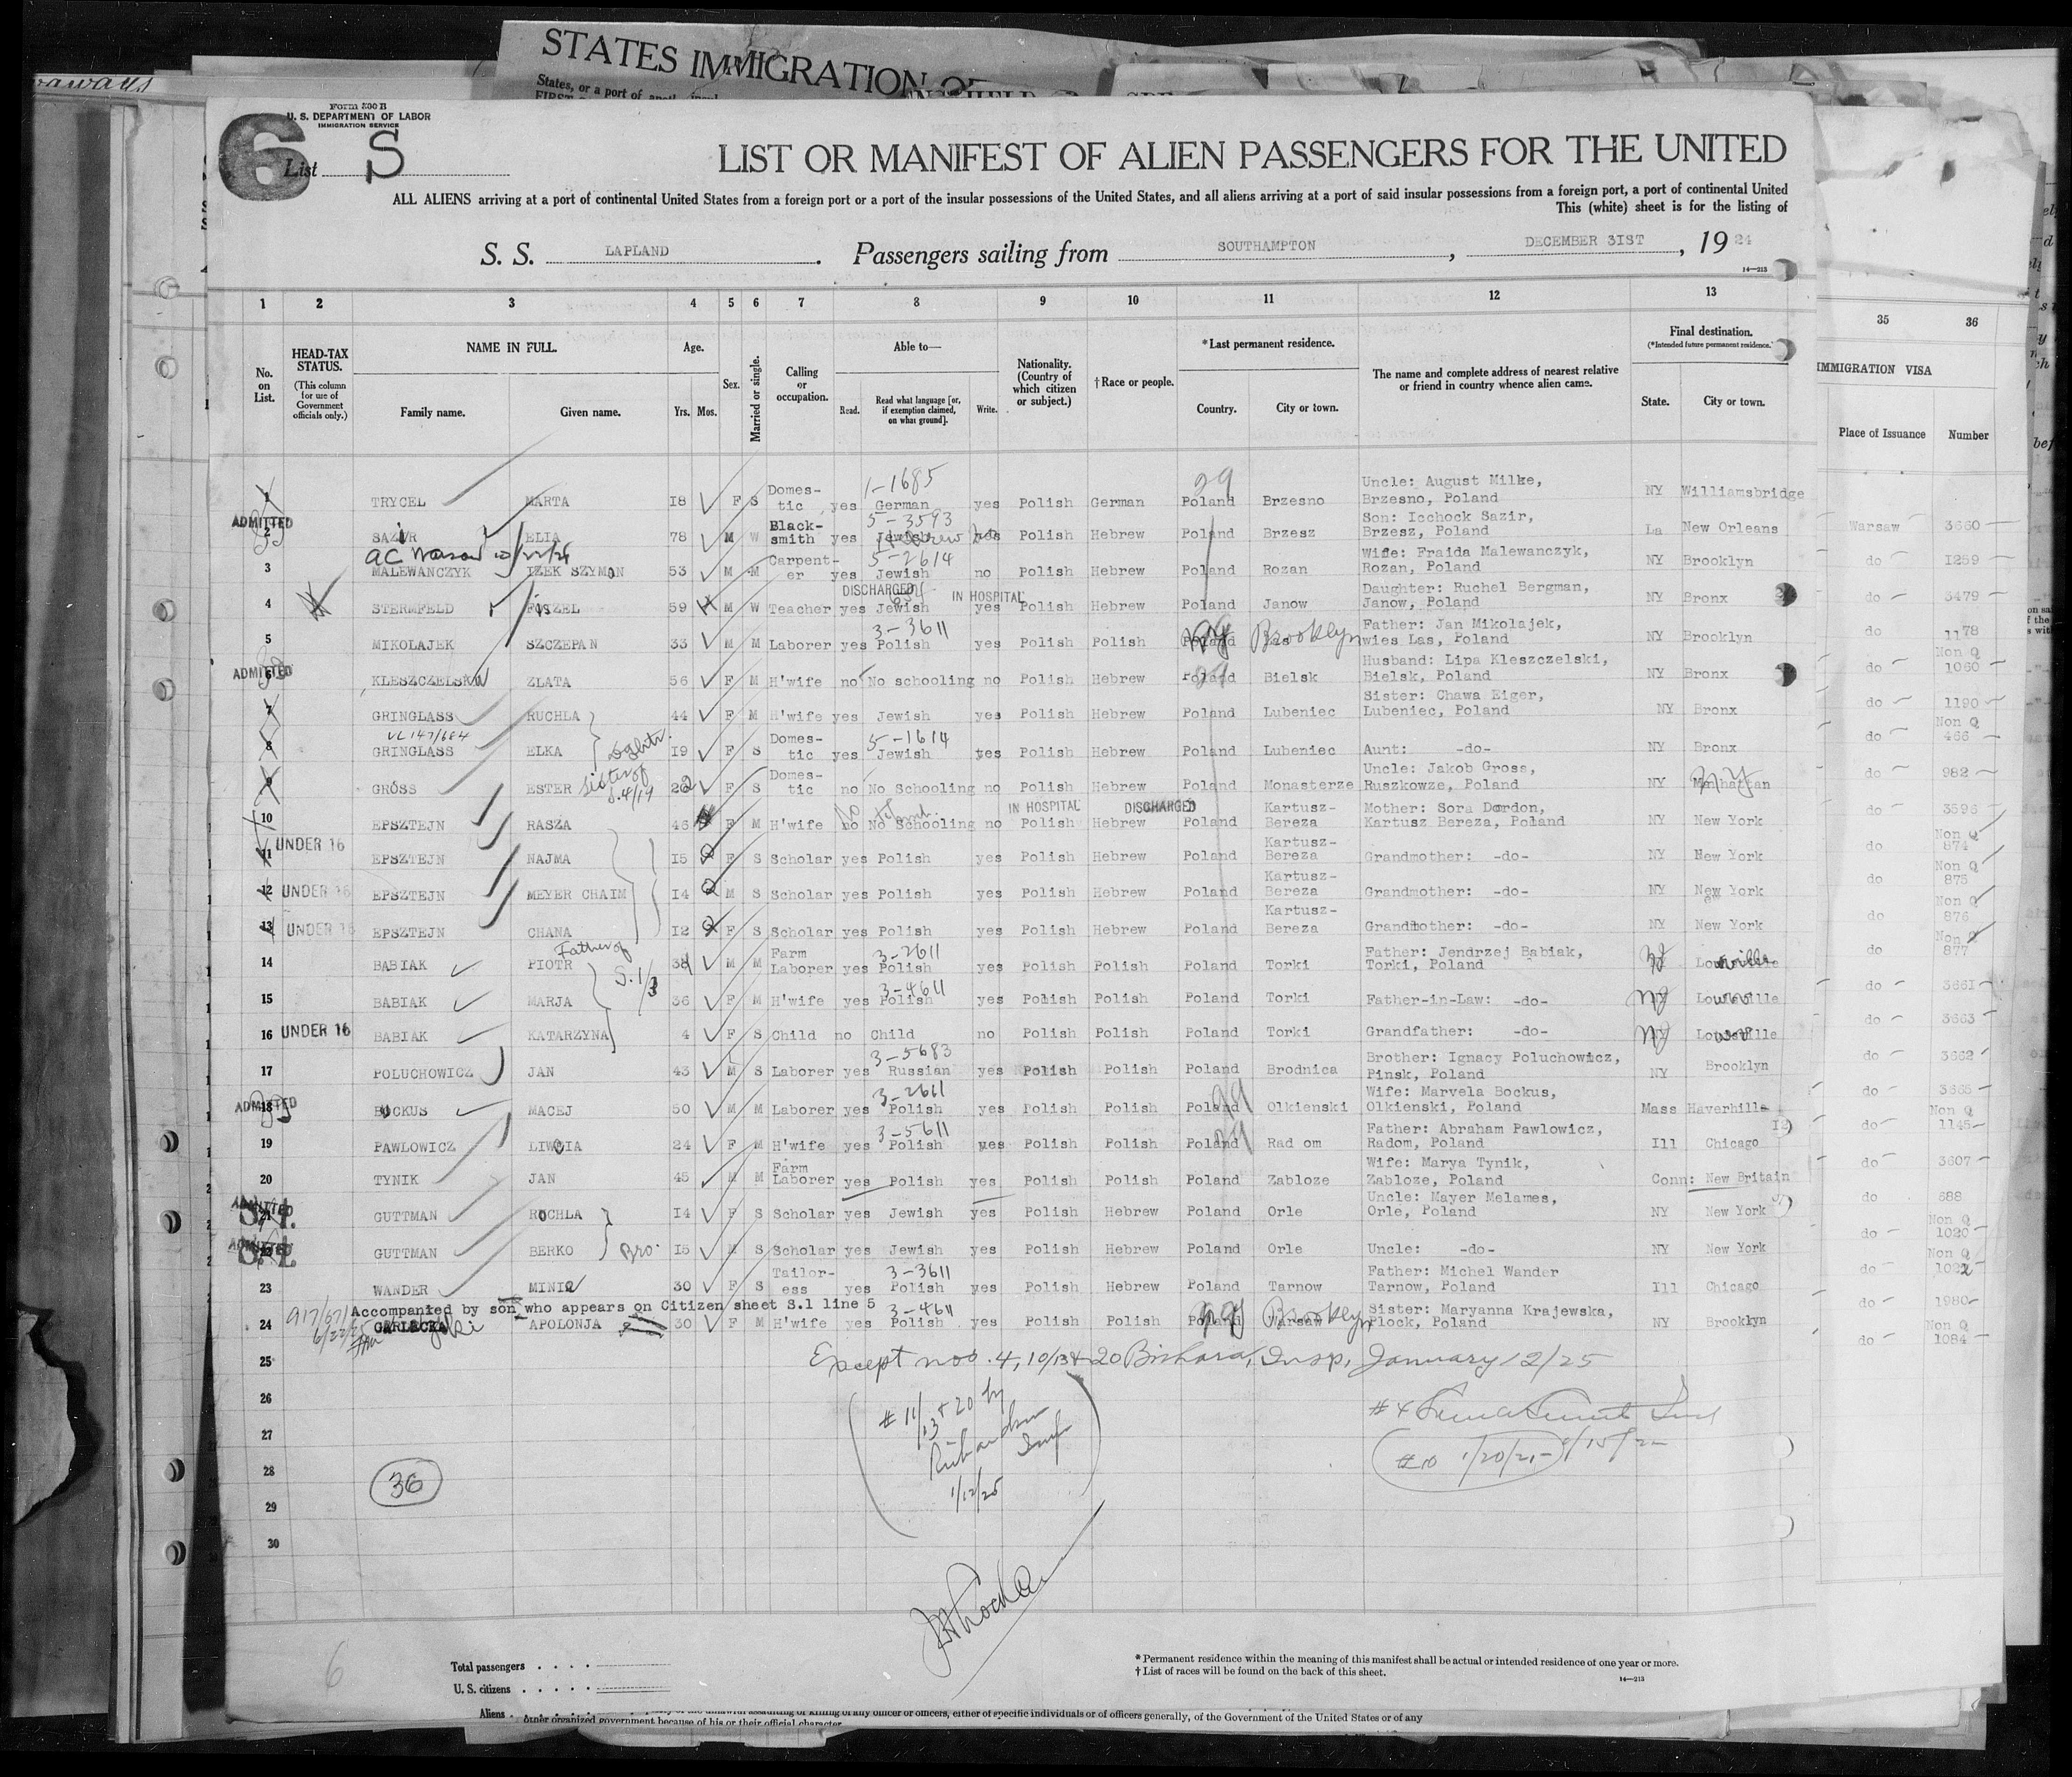 STATES IMMIGRATION
States, or a port of
Form 500 B
U. S. DEPARTMENT OF LABOR
IMMIGRATION SERVICE
6
List S
LIST OR MANIFEST OF ALIEN PASSENGERS FOR THE UNITED
ALL ALIENS arriving at a port of continental United States from a foreign port or a port of the insular possessions of the United States, and all aliens arriving at a port of said insular possessions from a foreign port, a port of continental United
This (white) sheet is for the listing of
S. S. LAPLAND. Passengers sailing from SOUTHAMPTON, DECEMBER 31ST, 1924
14—213
1 2 3 4 5 6 7 8 9 10 11 12 13 35 36
No. on List.
HEAD-TAX STATUS. (This column for use of Government officials only.)
NAME IN FULL.
Family name. Given name.
Age. Yrs. Mos.
Sex.
Married or single.
Calling or occupation.
Able to—
Read. Read what language [or, if exemption claimed, on what ground]. Write.
Nationality. (Country of which citizen or subject.)
†Race or people.
*Last permanent residence.
Country. City or town.
The name and complete address of nearest relative or friend in country whence alien came.
Final destination. (*Intended future permanent residence.)
State. City or town.
IMMIGRATION VISA
Place of Issuance Number
1 TRYCEL MARTA 18 F S Domes-tic yes German 1-1685 yes Polish German Poland 29 Brzesno Uncle: August Milke, Brzesno, Poland NY Williamsbridge
ADMITTED
2 SAZUR ELIA 78 M W Black-smith yes Jewish Hebrew 5-3593 Polish Hebrew Poland Brzesz Son: Icchock Sazir, Brzesz, Poland La New Orleans Warsaw 3660
AC Warsaw
3 MALEWANCZYK IZEK SZYMON 53 M M Carpent-er yes Jewish 5-2614 no Polish Hebrew Poland Rozan Wife: Fraida Malewanczyk, Rozan, Poland NY Brooklyn do 1259
DISCHARGED IN HOSPITAL
4 STERMFELD FISZEL 59 M W Teacher yes Jewish yes Polish Hebrew Poland Janow Daughter: Ruchel Bergman, Janow, Poland NY Bronx do 3479
5 MIKOLAJEK SZCZEPAN 33 M M Laborer yes Polish 3-3611 yes Polish Polish Poland NY Las Brooklyn Father: Jan Mikolajek, wies Las, Poland NY Brooklyn do 1178
ADMITTED
6 KLESZCZELSKA ZLATA 56 F M H'wife no No schooling no Polish Hebrew Poland Bielsk Husband: Lipa Kleszczelski, Bielsk, Poland NY Bronx do Non Q 1060
7 GRINGLASS RUCHLA 44 F M H'wife yes Jewish yes Polish Hebrew Poland Lubeniec Sister: Chawa Eiger, Lubeniec, Poland NY Bronx do 1190
VL 147/684
8 GRINGLASS ELKA Dghtr. 19 F S Domes-tic yes Jewish 5-1614 yes Polish Hebrew Poland Lubeniec Aunt: -do- NY Bronx do Non Q 466
9 GROSS ESTER Sister of S.4/19 22 F S Domes-tic no No Schooling no Polish Hebrew Poland Monasterze Uncle: Jakob Gross, Ruszkowze, Poland NY Manhattan NY do 982
IN HOSPITAL DISCHARGED
10 EPSZTEJN RASZA 46 F M H'wife no No Schooling no Polish Hebrew Poland Kartusz-Bereza Mother: Sora Dordon, Kartusz Bereza, Poland NY New York do 3596
11 UNDER 16 EPSZTEJN NAJMA 15 F S Scholar yes Polish yes Polish Hebrew Poland Kartusz-Bereza Grandmother: -do- NY New York do Non Q 874
12 UNDER 16 EPSZTEJN MEYER CHAIM 14 M S Scholar yes Polish yes Polish Hebrew Poland Kartusz-Bereza Grandmother: -do- NY New York do Non Q 875
13 UNDER 16 EPSZTEJN CHANA 12 F S Scholar yes Polish yes Polish Hebrew Poland Kartusz-Bereza Grandmother: -do- NY New York do Non Q 876
14 BABIAK PIOTR Father of S.1/3 M M Farm Laborer yes Polish 3-2611 yes Polish Polish Poland Torki Father: Jendrzej Babiak, Torki, Poland NJ do Non Q 877
15 BABIAK MARJA 36 F M H'wife yes Polish 3-4611 yes Polish Polish Poland Torki Father-in-Law: -do- NJ do 3661
16 UNDER 16 BABIAK KATARZYNA 4 F S Child no Child no Polish Polish Poland Torki Grandfather: -do- NJ do 3663
17 POLUCHOWICZ JAN 43 M S Laborer yes Russian 3-5683 yes Polish Polish Poland Brodnica Brother: Ignacy Poluchowicz, Pinsk, Poland NY Brooklyn do 3662
ADMITTED
18 BOCKUS MACEJ 50 M M Laborer yes Polish 3-2611 yes Polish Polish Poland Olkienski Wife: Marvela Bockus, Olkienski, Poland Mass Haverhill do 3665
19 PAWLOWICZ 24 F M H'wife yes Polish 3-5611 yes Polish Polish Poland Radom Father: Abraham Pawlowicz, Radom, Poland Ill Chicago do Non Q 1145
20 TYNIK JAN 45 M M Farm Laborer yes Polish yes Polish Polish Poland Zabloze Wife: Marya Tynik, Zabloze, Poland Conn: New Britain do 3607
ADMITTED S.I.
21 GUTTMAN ROCHLA 14 F S Scholar yes Jewish yes Polish Hebrew Poland Orle Uncle: Mayer Melames, Orle, Poland NY New York do 688
ADMITTED S.I.
22 GUTTMAN BERKO Bro. 15 M S Scholar yes Jewish yes Polish Hebrew Poland Orle Uncle: -do- NY New York do Non Q 1020
23 WANDER MINIA 30 F S Tailor-ess yes Polish 3-3611 yes Polish Hebrew Poland Tarnow Father: Michel Wander Tarnow, Poland Ill Chicago do Non Q 1022
Accompanied by son who appears on Citizen sheet S.1 line 5
24 GARLECKA APOLONJA 30 F M H'wife yes Polish 3-4611 yes Polish Polish Poland NY Warsaw Brooklyn Sister: Maryanna Krajewska, Plock, Poland NY Brooklyn do 1980
do Non Q 1084
25 Except nos. 4, 10/13 & 20 Insp. January 12/25
26
27
28
29
30
# 11/13 + 20 by Richardson Insp 1/12/25
36
#10 1/20/25
6
Total passengers
U. S. citizens
Aliens
* Permanent residence within the meaning of this manifest shall be actual or intended residence of one year or more.
† List of races will be found on the back of this sheet.
14—213
other organized government because of his or their official character
of any officer or officers, either of specific individuals or of officers generally, of the Government of the United States or of any